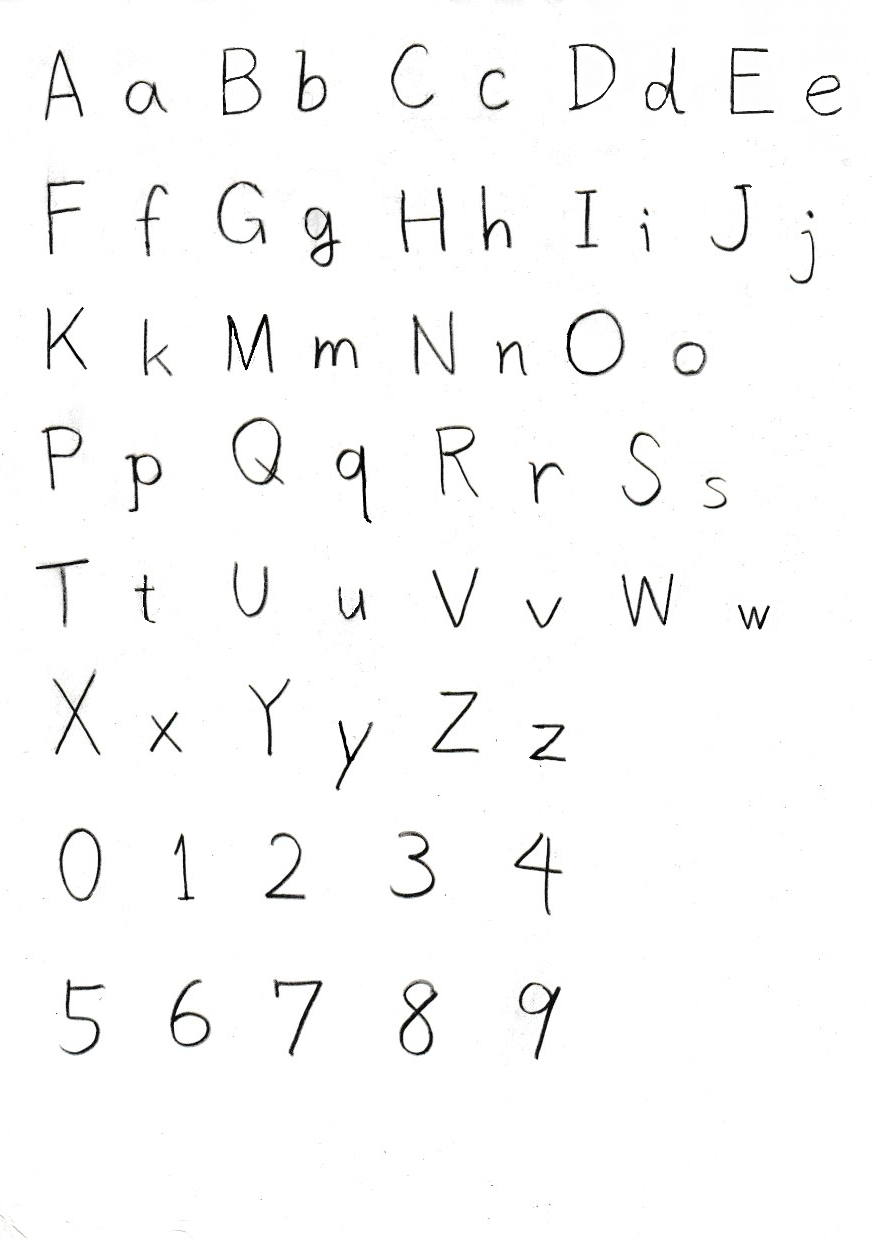 A a B b C c D d E e
F f G g H h I i J j
K k M m N n O o
P p Q q R r S s
T t U u V v W w
X x Y y Z z
0 1 2 3 4
5 6 7 8 9